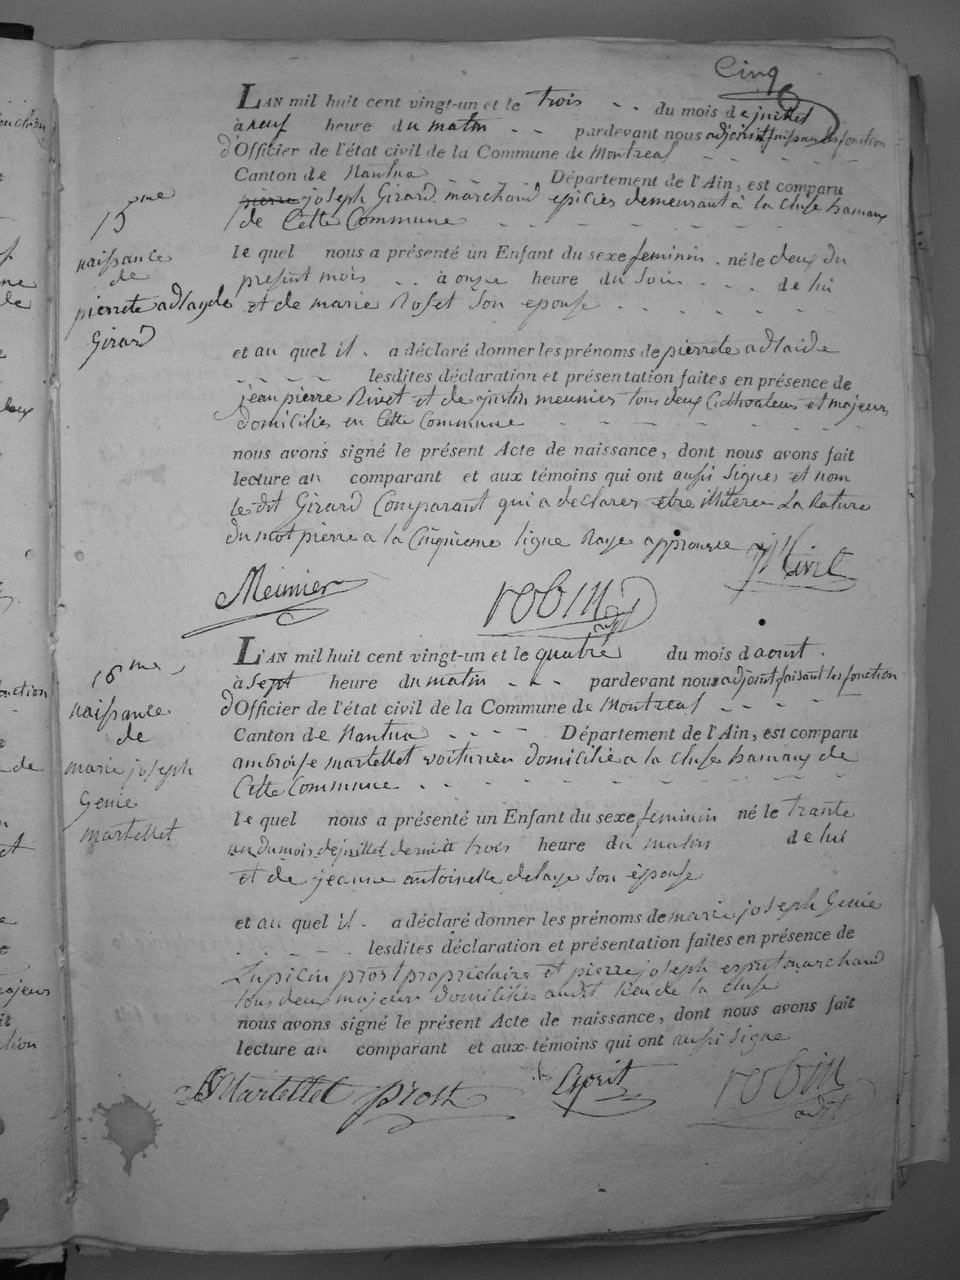 Cinq
L'AN mil huit cent vingt-un et le trois du mois de juillet
à neuf heure du matin pardevant nous adjoint faisant les fonction
d'Officier de l'état civil de la Commune de Montreal
Canton de Nantua Département de l'Ain, est comparu
pierre joseph Girard marchand epicier demeurant à la cluse hamaux
de Cette Commune
15me
naissance
de
pierrete adlayde
Girard
le quel nous a présenté un Enfant du sexe feminin né le deux du
present mois à onze heure du soir de lui
et de marie Roset son epouse
et au quel il a déclaré donner les prénoms de pierrete adlaide
lesdites déclaration et présentation faites en présence de
jean pierre Rivet et de justin meunier tous deux Cultivateurs et majeurs
domiciliés en Cette Commune
nous avons signé le présent Acte de naissance, dont nous avons fait
lecture au comparant et aux témoins qui ont aussi signes et nom
le dit Girard Comparant qui a declarer etre illiterer La Rature
du mot pierre a la Cinquieme ligne Raye approuvee
Meunier robin adjt Rivet
16me
naissance
de
marie joseph
Genie
martellet
L'AN mil huit cent vingt-un et le quatre du mois d'aoust
à sept heure du matin pardevant nous adjoint faisant les fonction
d'Officier de l'état civil de la Commune de Montreal
Canton de Nantua Département de l'Ain, est comparu
ambroise martellet voiturier domicilié a la cluse hamaux de
Cette Commune
le quel nous a présenté un Enfant du sexe feminin né le trante
un du mois de juillet dernier à trois heure du matin de lui
et de jeanne antoinette delaye son épouse
et au quel il a déclaré donner les prénoms de marie joseph Genie
lesdites déclaration et présentation faites en présence de
Lupicin prost propriétaire et pierre joseph esprit marchand
tous deux majeurs domiciliés audit lieu de la cluse
nous avons signé le présent Acte de naissance, dont nous avons fait
lecture au comparant et aux témoins qui ont aussi signe
Martellet prost Esprit robin adjt